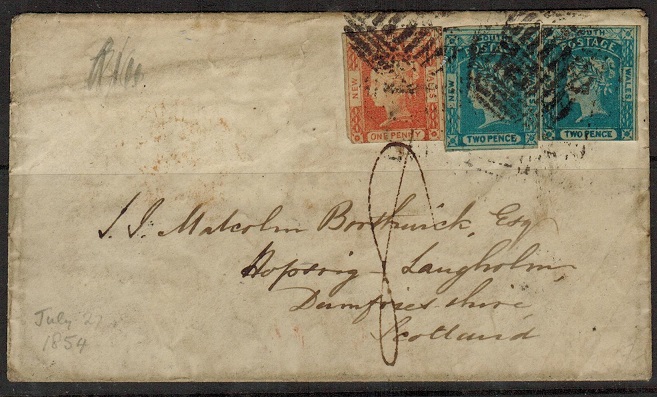 SOUTH
POSTAGE
NEW
WALES
ONE PENNY
SOUTH
POSTAGE
NEW
TWO PENCE
SOUTH
POSTAGE
WALES
TWO PENCE
8
J. J. Malcolm Borthwick, Esq
Hopsrig Langholm,
Dumfriesshire
Scotland
July 27
1854